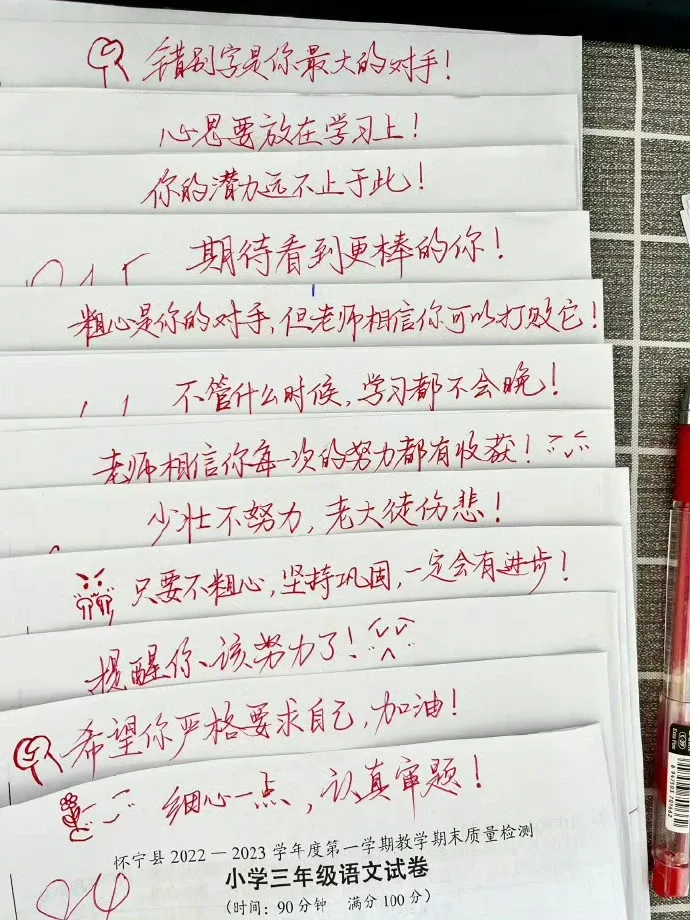 错别字是你最大的对手！
心思要放在学习上！
你的潜力远不止于此！
期待看到更棒的你！
粗心是你的对手，但老师相信你可以打败它！
不管什么时候，学习都不会晚！
老师相信你每一次的努力都有收获！
少壮不努力，老大徒伤悲！
只要不粗心，坚持巩固，一定会有进步！
提醒你、该努力了！
希望你严格要求自己，加油！
细心一点，认真审题！
怀宁县2022－2023学年度第一学期教学期末质量检测
小学三年级语文试卷
（时间：90分钟 满分100分）